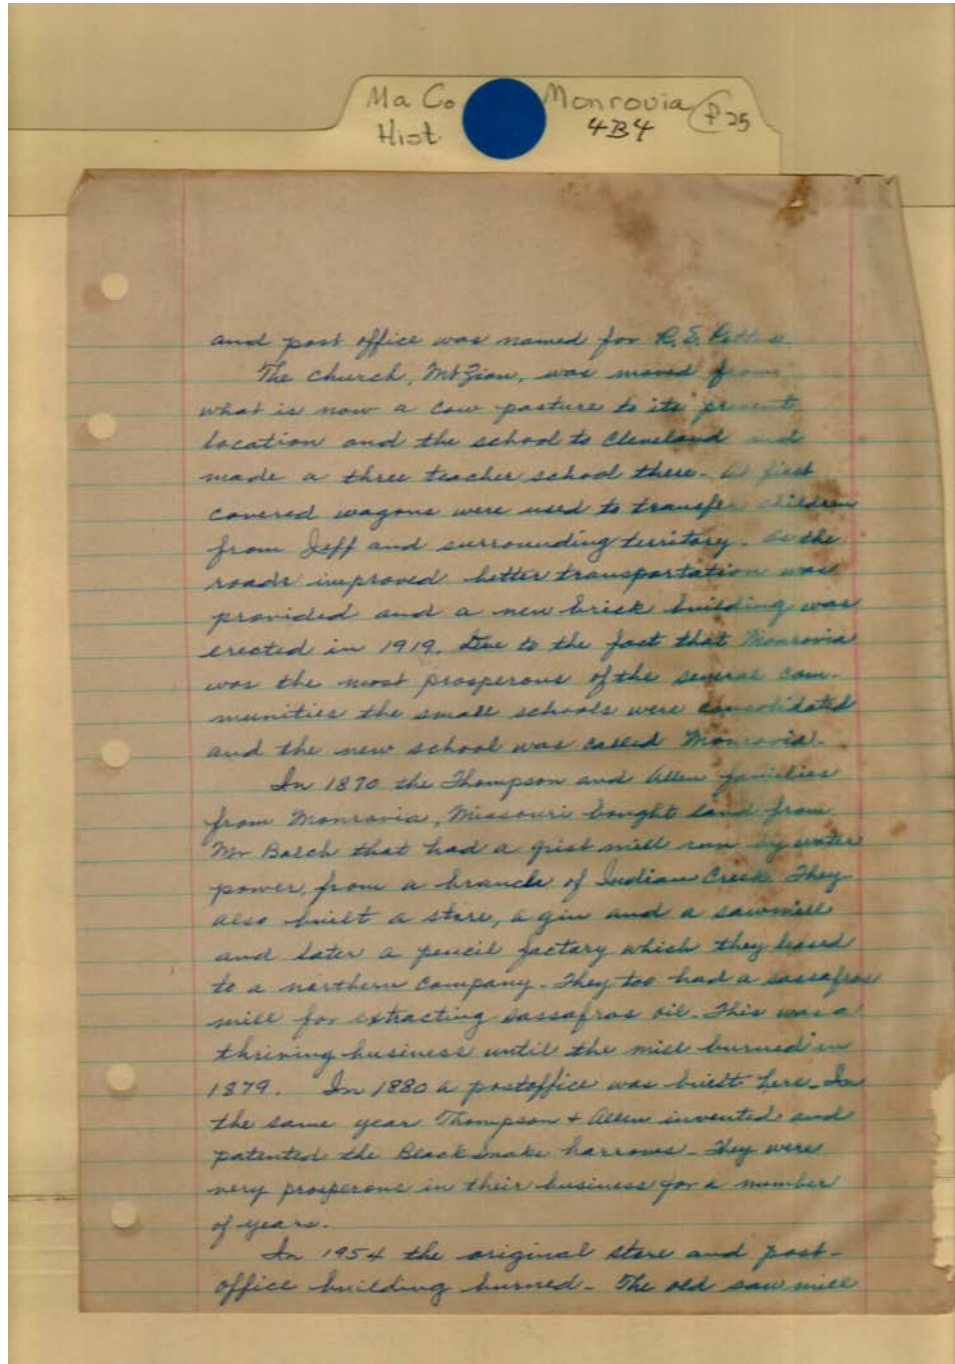 Ma Co Monrovia P 25
Hist. 4B4
and post office was named for R. E.
The church, Mt Zion, was moved from
what is now a cow pasture to its present
location and the school to Cleveland and
made a three teacher school there. At first
covered wagons were used to transfer children
from Jeff and surrounding territory. As the
roads improved better transportation was
provided and a new brick building was
erected in 1919. Due to the fact that Monrovia
was the most prosperous of the several com-
munities the small schools were consolidated
and the new school was called Monrovia.
In 1870 the Thompson and Allen families
from Monrovia, Missouri bought land from
Mr Balch that had a grist mill run by water
power, from a branch of Indian Creek. They
also built a store, a gin and a sawmill
and later a pencil factory which they leased
to a northern company. They too had a sassafras
mill for extracting sassafras oil. This was a
thriving business until the mill burned in
1879. In 1880 a postoffice was built here. In
the same year Thompson + Allen invented and
patented the Black Snake harrows. They were
very prosperous in their business for a number
of years.
In 1954 the original store and post-
office building burned. The old saw mill